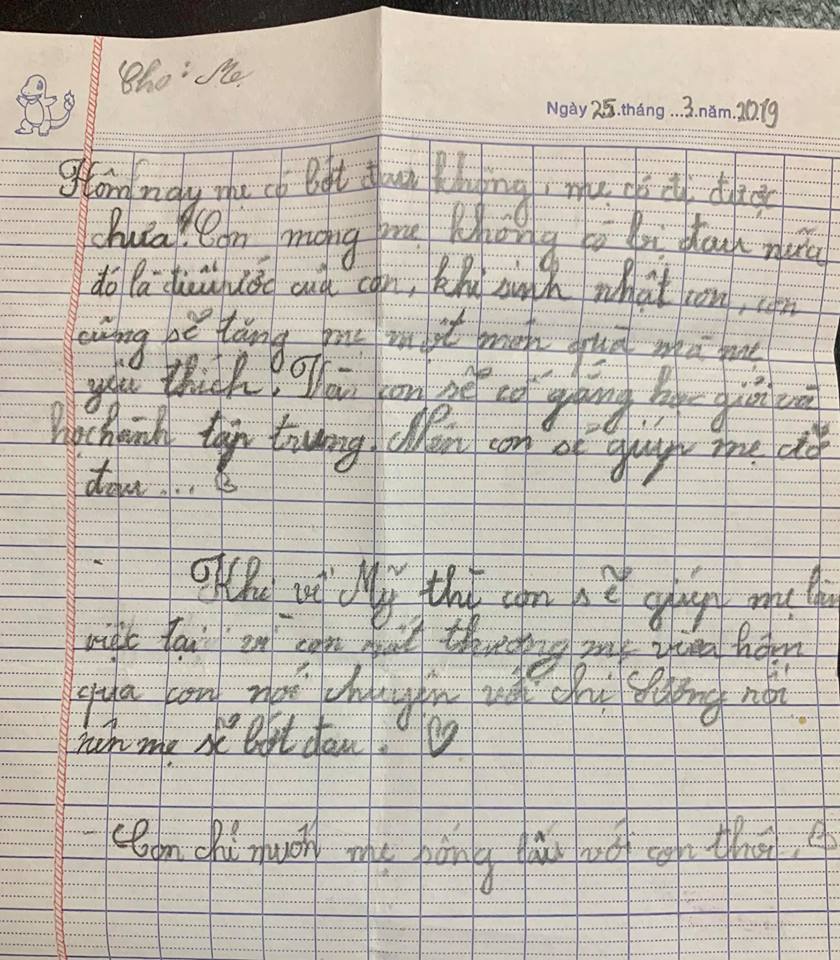 Cho: Mẹ
Ngày 25.tháng ...3.năm.2019
Hôm nay mẹ có bớt đau không, mẹ có đi được
chưa? Con mong mẹ không có bị đau nữa
đó là điều ước của con, khi sinh nhật con, con
cũng sẽ tăng mẹ một món quà mà mẹ
yêu thích. Và con sẽ cố gắng học giỏi và
học hành tập trung. Nên con sẽ giúp mẹ đỡ
đau...
Khi về Mỹ thì con sẽ giúp mẹ làm
việc tại vì con rất thương mẹ vừa hôm
qua con nói chuyện với chị Sương rồi
nên mẹ sẽ bớt đau.
- Con chỉ muốn mẹ sống lâu với con thôi.